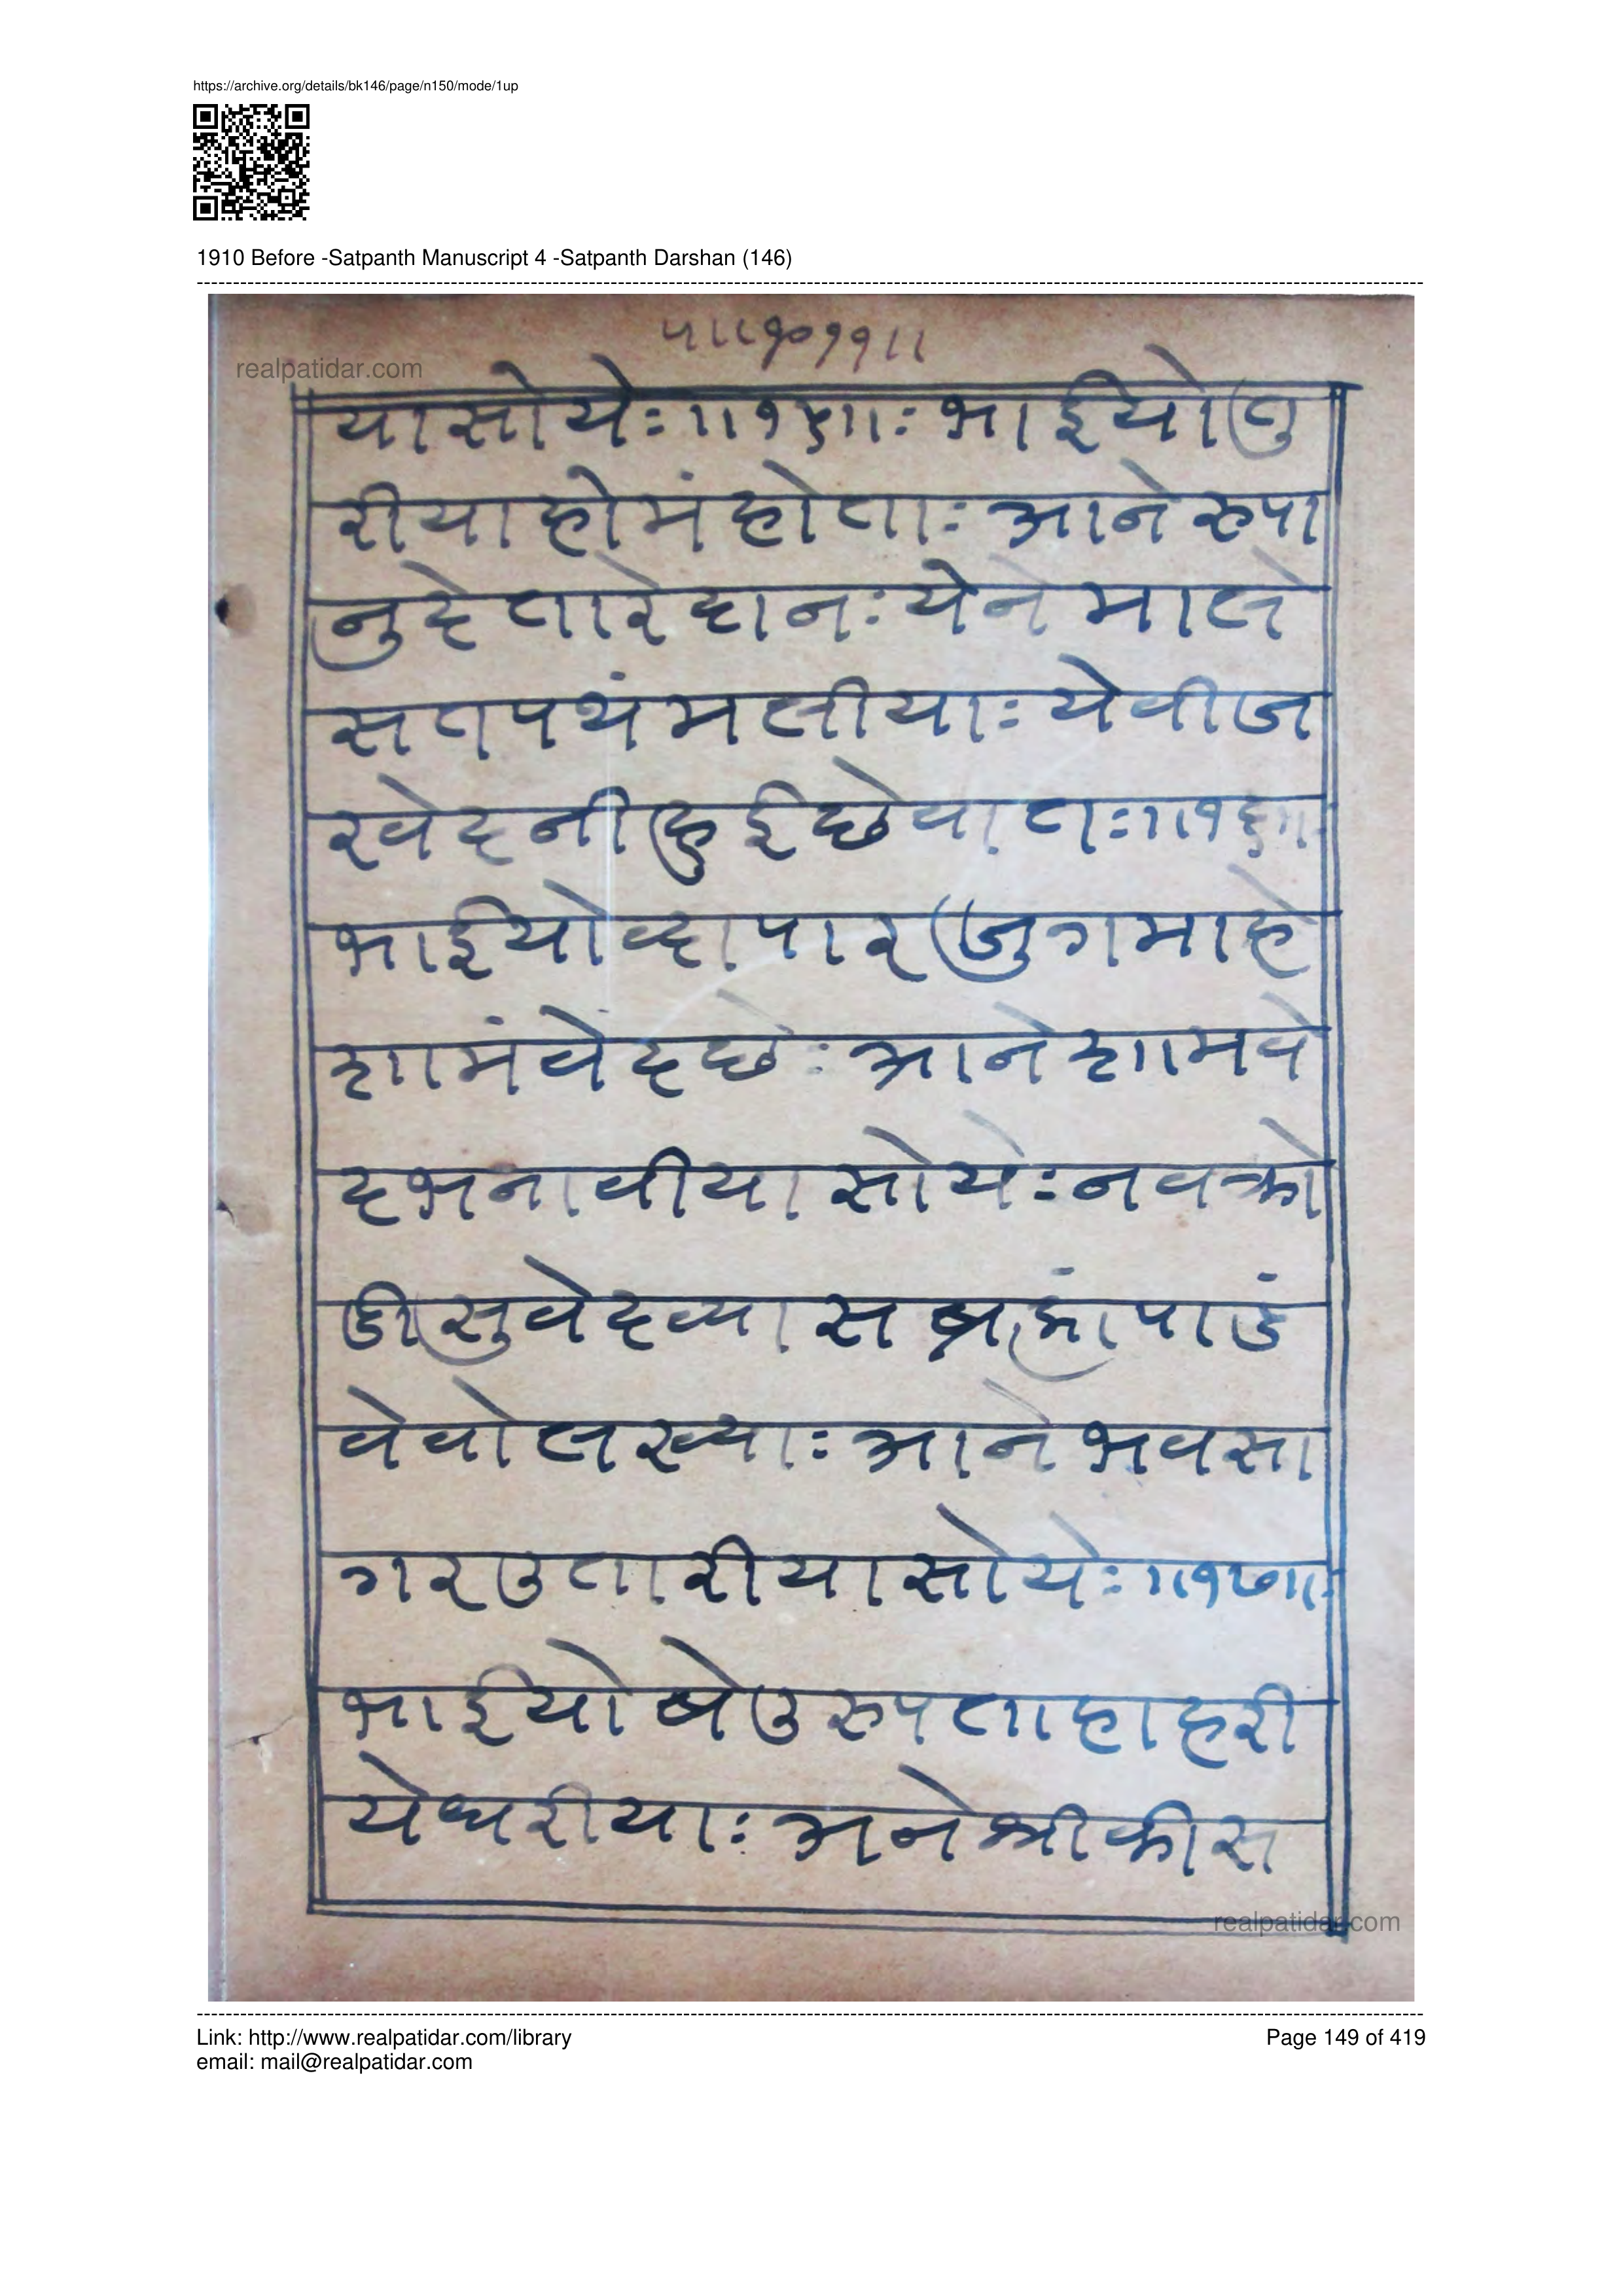 https://archive.org/details/bk146/page/n150/mode/1up
1910 Before -Satpanth Manuscript 4 -Satpanth Darshan (146)
realpatidar.com
यासोयेः॥१५॥ः भाईयोतु
रीयाहोमंहोताः आनेरुपा
नुदेतारेदानः येने माल
सतपथंमलीयाः येवीज
रवेदनीहुईछेवातः॥१६॥
भाईयोव्दापार जुगमाहे
शामंवेदछेः आनेशामवे
दभनावीया सोयेः नवक्रो
डीसुवेदव्यास ब्रह्मांपाडं
वेवोलख्याः आने भवसा
गरउतारीयासोयेः॥१७॥ः
भाईयोबेउरुपताहाहरी
येधरीयाः अनेश्रीक्रीस
realpatidar.com
Link: http://www.realpatidar.com/library
email: mail@realpatidar.com
Page 149 of 419